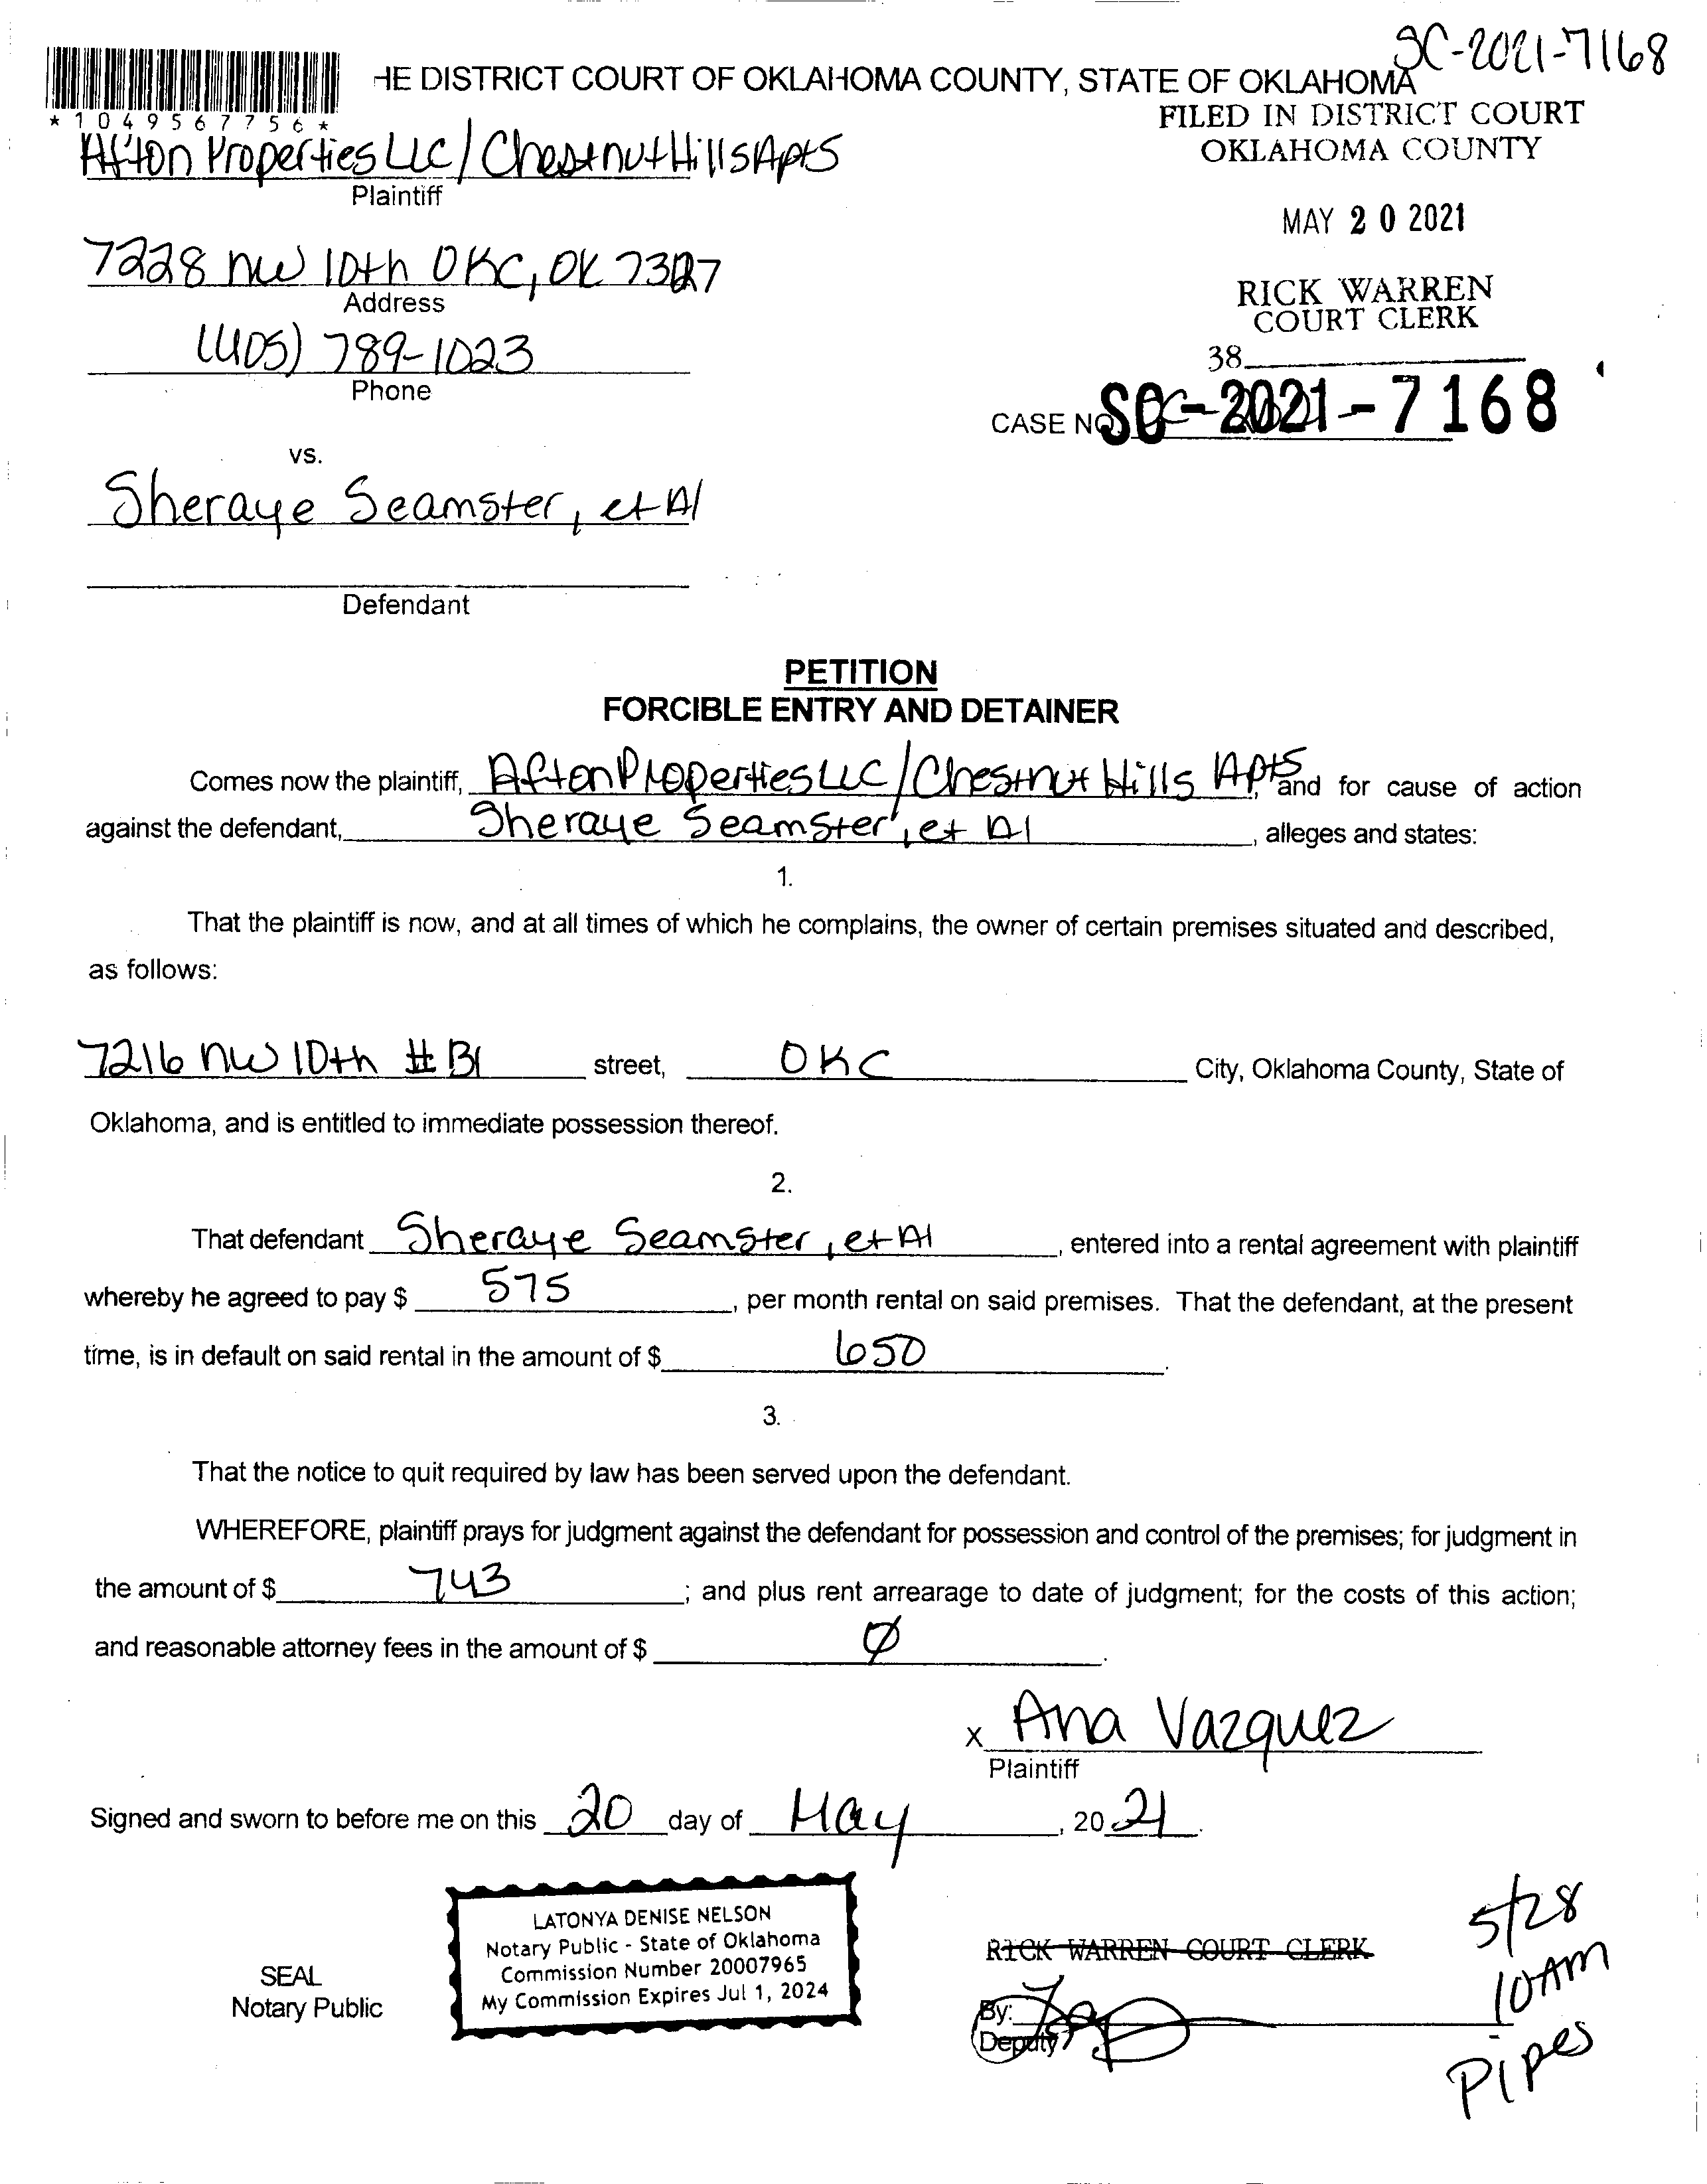 SC-2021-7168
HE DISTRICT COURT OF OKLAHOMA COUNTY, STATE OF OKLAHOMA
*1049567756*
FILED IN DISTRICT COURT
OKLAHOMA COUNTY
Afton Properties LLC/Chestnut Hills Apts
Plaintiff
MAY 20 2021
7228 NW 10th OKC, OK 73127
Address
RICK WARREN
COURT CLERK
(405) 789-1023
Phone
38
CASE NO. SC-2021-7168
vs.
Sheraye Seamster, et Al
Defendant
PETITION
FORCIBLE ENTRY AND DETAINER
Comes now the plaintiff, Afton Properties LLC/Chestnut Hills Apts, and for cause of action
against the defendant, Sheraye Seamster, et Al, alleges and states:
1.
That the plaintiff is now, and at all times of which he complains, the owner of certain premises situated and described,
as follows:
7216 NW 10th #B1 street, OKC City, Oklahoma County, State of
Oklahoma, and is entitled to immediate possession thereof.
2.
That defendant Sheraye Seamster, et Al, entered into a rental agreement with plaintiff
whereby he agreed to pay $ 575, per month rental on said premises. That the defendant, at the present
time, is in default on said rental in the amount of $ 650.
3.
That the notice to quit required by law has been served upon the defendant.
WHEREFORE, plaintiff prays for judgment against the defendant for possession and control of the premises; for judgment in
the amount of $ 743; and plus rent arrearage to date of judgment; for the costs of this action;
and reasonable attorney fees in the amount of $ Ø.
X Ana Vazquez
Plaintiff
Signed and sworn to before me on this 20 day of May, 2021.
LATONYA DENISE NELSON
Notary Public - State of Oklahoma
Commission Number 20007965
My Commission Expires Jul 1, 2024
SEAL
Notary Public
RICK WARREN COURT CLERK
By:
Deputy
5/28
10AM
Pipes